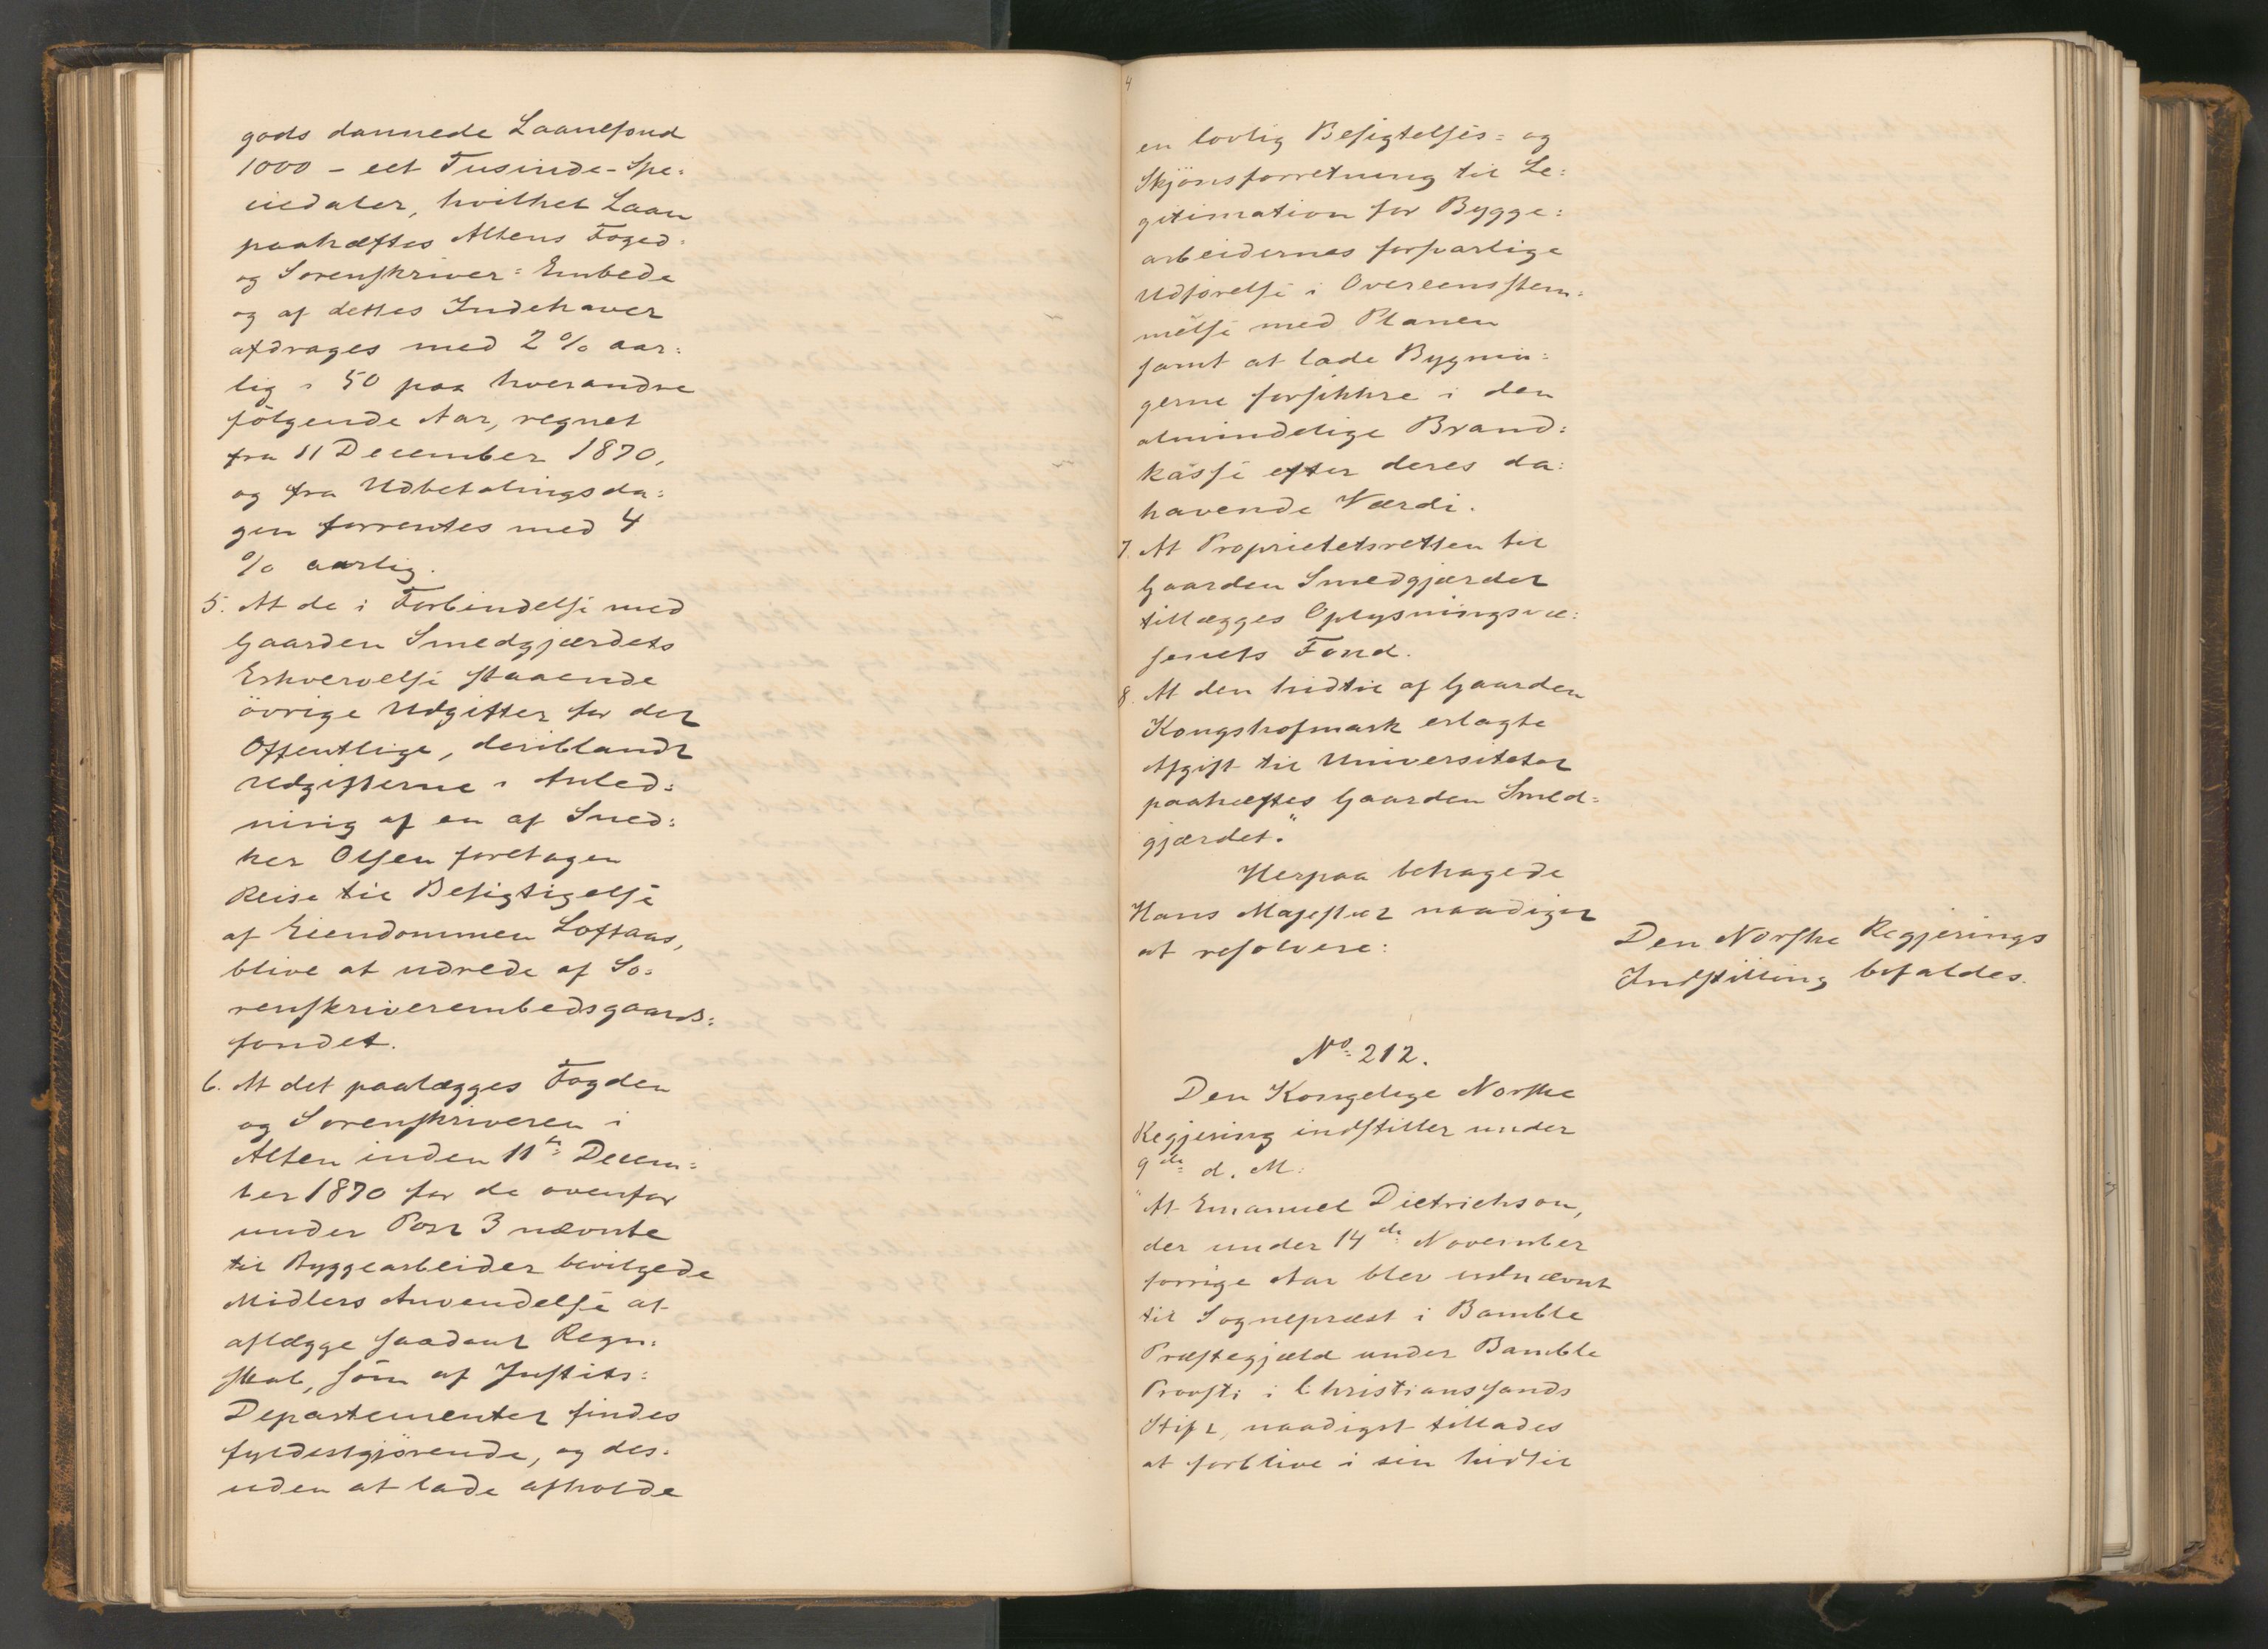 gods dannede Laanefond
1000 - eet Tusinde - Spe:
ciedaler, hvilket Laan
paahæftes Altens Foged:
og Sorenskriver = Embede
og af dettes Indehaver
afdrages med 2 % aar:
lig i 50 paa hverandre
følgende Aar, regnet
fra 11 December 1870,
og fra Udbetalingsda:
gen forrentes med 4
% aarlig.
5. At de i Forbindelse med
Gaarden Smedgjærdets
Erhvervelse staaende
övrige Udgifter for det
Offentlige, deriblandt
Udgifterne i Anled:
ning af en af Sned:
ker Olsen foretagen
Reise til Besigtigelse
af Eiendommen Loftaas,
blive at udrede af So:
renskriverembedsgaards:
fondet.
6. At det paalægges Fogden
og Sorenskriveren i
Alten inden 11te Decem:
ber 1870 for de ovenfor
under Post 3 nævnte
til Byggearbeider bevilgede
Midlers Anvendelse at
aflægge saadant Regn:
skab, som af Justits:
Departementet findes
fyldestgjörende, og des:
uden at lade afholde
4
en lovlig Besigtelses = og
Skjönsforretning til Le:
gitimation for Bygge:
arbeidernes forsvarlige
Udförelse i Overeensstem:
melse med Planen
samt at lade Bygnin:
gerne forsikkre i den
almindelige Brand:
kasse efter deres da:
havende Værdi.
7. At Proprietetsretten til
Gaarden Smedgjærdet
tillægges Oplysningsvæ:
senets Fond.
8. At den hidtil af Gaarden
Kongshofmark erlagte
Afgift til Universitetet
paahæftes Gaarden Smed=
gjærdet."
Herpaa behagede
Hans Majestæt naadigst
at resolvere:
Den Norske Regjerings
Indstilling bifaldes.
No 212.
Den Kongelige Norske
Regjering indstiller under
9de d. M:
"At Emanuel Dietrichson,
der under 14de November
forrige Aar blev udnævnt
til Sognepræst i Bamble
Præstegjæld under Bamble
Provsti i Christianssands
Stift, naadigst tillades
at forblive i sin hidtil